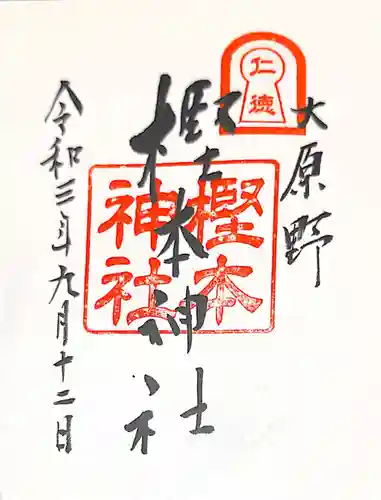 大原野
仁徳
樫本神社
樫本
神社
令和三年九月十二日